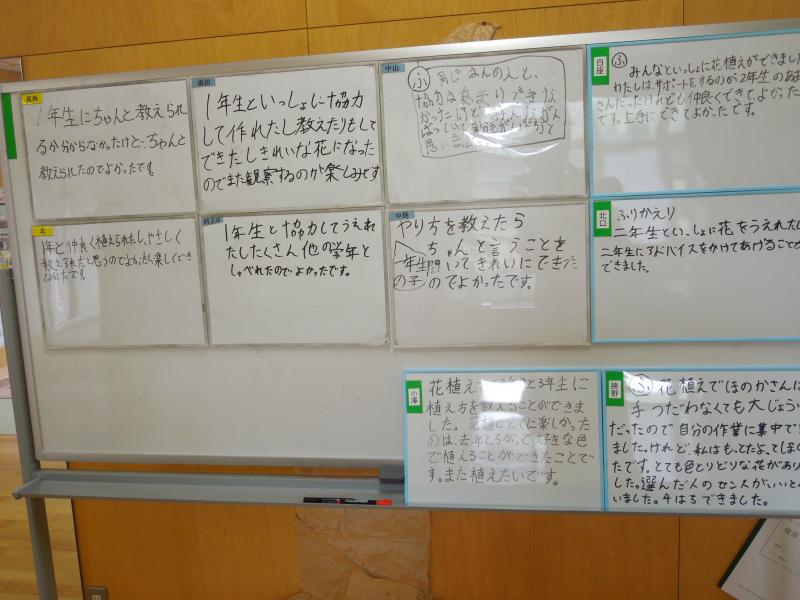 尾西
1年生にちゃんと教えられ
るか分からなかったけど、ちゃんと
教えられたのでよかったです。
坂田
1年生といっしょに協力
して作れたし教えたりもして
できたしきれいな花になった
のでまた観察するのが楽しみです
中山
ふ 同じはんの人と、
協力はあまりできな
かったけど
白座
ふ みんなといっしょに花植えができました
わたしは、サポートをするのが2年生の
さんだったけれども仲良くできて、よかった
です。上手にできてよかったです。
北
1年と仲良く植えられたし、やさしく
教えられたと思うのでよかったし楽しくでき
村上
1年生と協力してうえれ
たしたくさん他の学年と
しゃべれたのでよかったです。
中林
やり方を教えたら
1年生の子 ちゃんと言うことを
聞いてきれいにできた
のでよかったです。
北口
ふりかえり
二年生といっしょに花をうえれたし
二年生にアドバイスをかけてあげること
できました。
小澤
花植えで 年生と3年生に
植え方を教えることができま
した。花植えでとくに楽しかった
のは、去年とちがって、好きな色
で植えることができたことで
す。また植えたいです。
ふ 花植えでほのかさんは
手つだわなくても大じょう
だったので自分の作業に集中で
ました。けれど、私はもってたよってしまし
たです。とても色とりどりな花があり
した。選んだ人のセンスがいいと
いました。4はちできました。